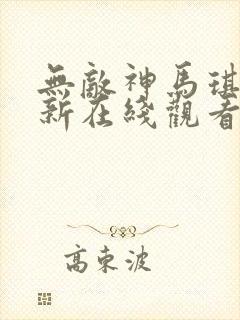 無敵神馬琪
新在綫觀看
高束波